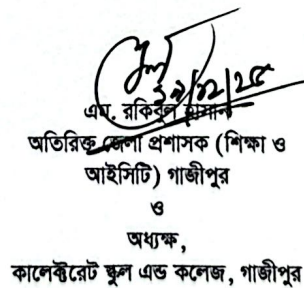 ৩১/১২/২৫
এম. রকিবুল হাসান
অতিরিক্ত জেলা প্রশাসক (শিক্ষা ও
আইসিটি) গাজীপুর
ও
অধ্যক্ষ,
কালেক্টরেট স্কুল এন্ড কলেজ, গাজীপুর